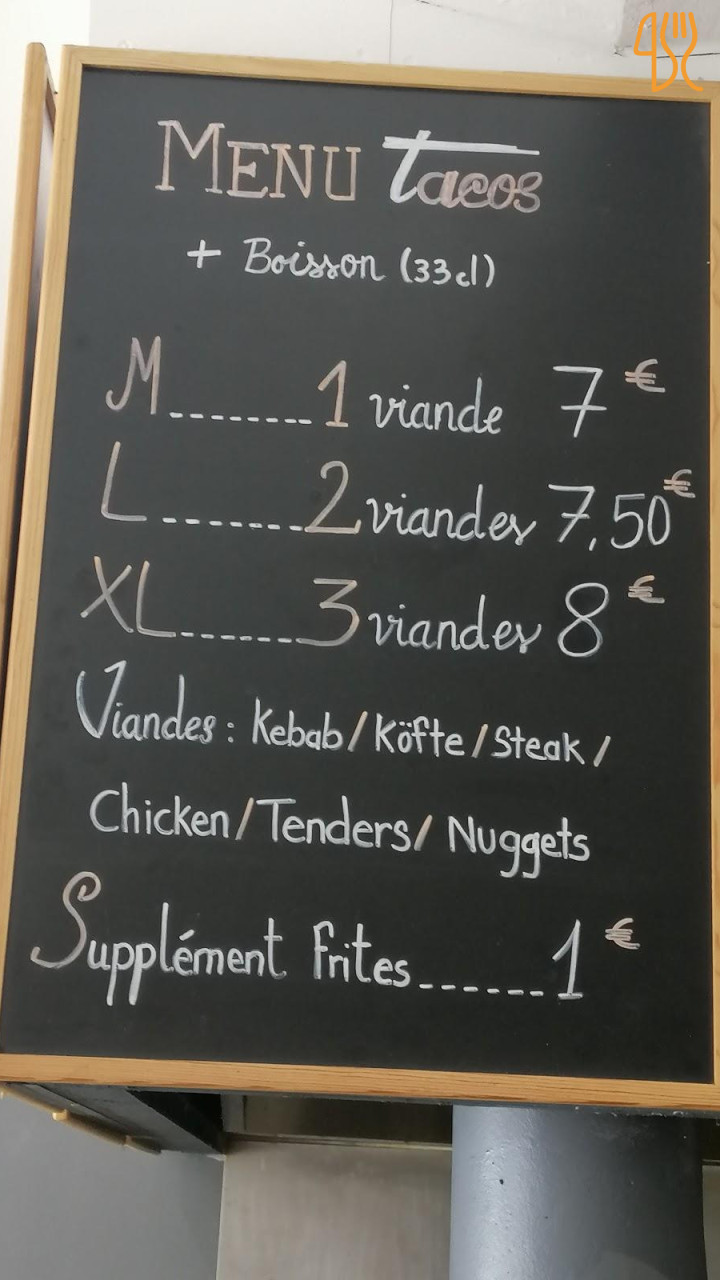 MENU Tacos
+ Boisson (33cl)
M........1 viande 7€
L........2 viandes 7,50€
XL.......3 viandes 8€
Viandes : Kebab/Köfte/Steak/
Chicken/Tenders/Nuggets
Supplément Frites......1€